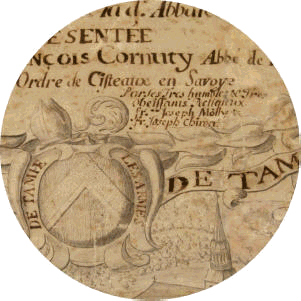 la d. Abba
ESENTÉE
nçois Cornuty Abbé de
Ordre de Cisteaux en Savoye
Par ses Tres humbles & Tres
obeissants Religieux
fr. Joseph
fr. Joseph
DE TAMIE
LES ARMES
DE TAM